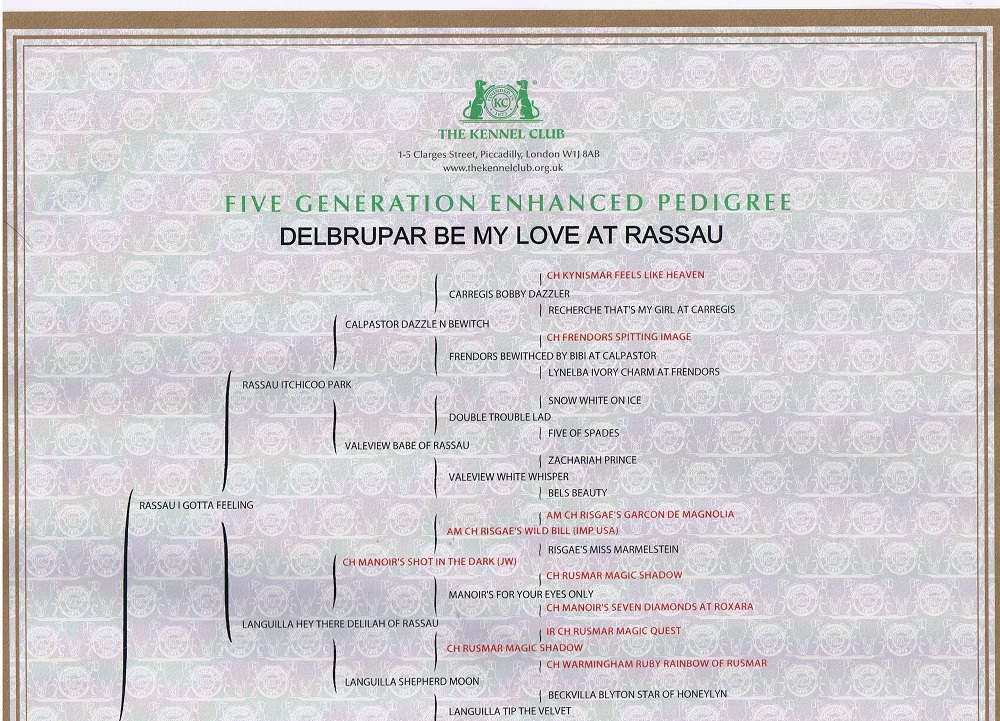 KC
®
THE KENNEL CLUB
1-5 Clarges Street, Piccadilly, London W1J 8AB
www.thekennelclub.org.uk
FIVE GENERATION ENHANCED PEDIGREE
DELBRUPAR BE MY LOVE AT RASSAU
CH KYNISMAR FEELS LIKE HEAVEN
CARREGIS BOBBY DAZZLER
RECHERCHE THAT'S MY GIRL AT CARREGIS
CALPASTOR DAZZLE N BEWITCH
CH FRENDORS SPITTING IMAGE
FRENDORS BEWITHCED BY BIBI AT CALPASTOR
LYNELBA IVORY CHARM AT FRENDORS
RASSAU ITCHICOO PARK
SNOW WHITE ON ICE
DOUBLE TROUBLE LAD
FIVE OF SPADES
VALEVIEW BABE OF RASSAU
ZACHARIAH PRINCE
VALEVIEW WHITE WHISPER
BELS BEAUTY
RASSAU I GOTTA FEELING
AM CH RISGAE'S GARCON DE MAGNOLIA
AM CH RISGAE'S WILD BILL (IMP USA)
RISGAE'S MISS MARMELSTEIN
CH MANOIR'S SHOT IN THE DARK (JW)
CH RUSMAR MAGIC SHADOW
MANOIR'S FOR YOUR EYES ONLY
CH MANOIR'S SEVEN DIAMONDS AT ROXARA
LANGUILLA HEY THERE DELILAH OF RASSAU
IR CH RUSMAR MAGIC QUEST
CH RUSMAR MAGIC SHADOW
CH WARMINGHAM RUBY RAINBOW OF RUSMAR
LANGUILLA SHEPHERD MOON
BECKVILLA BLYTON STAR OF HONEYLYN
LANGUILLA TIP THE VELVET